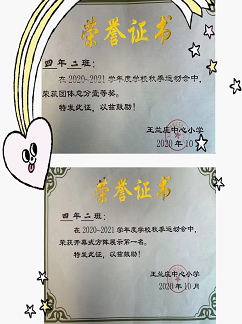 荣誉证书
四年二班：
在2020-2021学年度学校秋季运动会中，
荣获团体总分壹等奖。
特发此证，以兹鼓励！
王兰庄中心小学
2020年10
荣誉证书
四年二班：
在2020-2021学年度学校秋季运动会中，
荣获开幕式方阵展示第一名。
特发此证，以兹鼓励！
王兰庄中心小学
2020年10月